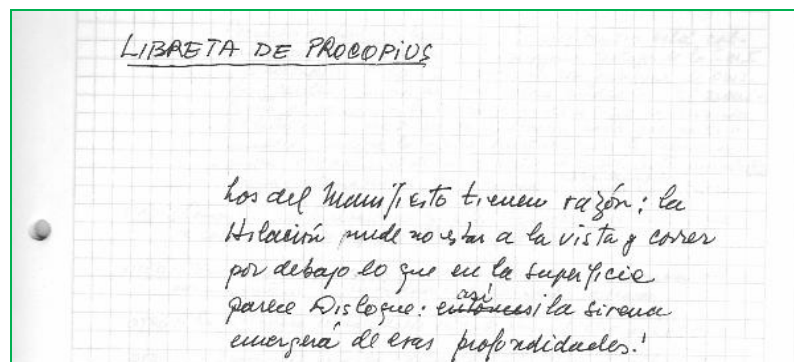 LIBRETA DE PROCOPIUS
Los del Manifiesto tienen razón: la
Hilación puede no estar a la vista y correr
por debajo lo que en la superficie
parece Disloque: así la sirena
emergerá de esas profundidades.